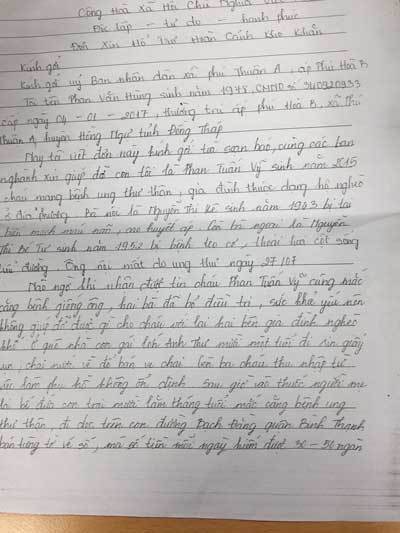 Cộng Hoà Xã Hội Chủ Nghĩa Việt
Độc lập - tự do - hạnh phúc
Đơn Xin Hỗ Trợ Hoàn Cảnh Khó Khăn
Kính gởi
Kính gởi uỷ Ban nhân dân xã phú Thuận A, ấp Phú Hoà B
Tôi tên Phan Văn Hùng sinh năm 1978, CMND số 340920933
cấp ngày 04 - 01 - 2017, thường trú ấp phú Hoà B, xã Phú
Thuận A, huyện Hồng Ngự tỉnh Đồng Tháp
Nay tôi viết đơn này kính gởi toà soạn báo, cùng các ban
nghành xin giúp đỡ con tôi là Phan Tuấn Vỹ sinh năm 2015
cháu mang bệnh ung thư thận, gia đình thuộc dạng hộ nghèo
ở địa phương. Bà nội là Nguyễn Thị Kê sinh năm 1943 bị tai
biến mạch máu não, cao huyết áp. Còn bà ngoại là Nguyễn
Thị Bé Tư sinh năm 1952 bị bệnh teo cơ, thoái hoá cột sống
tiểu đường. Ông nội mất do ung thư ngày 27/07
Nào ngờ khi nhận được tin cháu Phan Tuấn Vỹ cũng mắc
căng bệnh giống ông, hai bà đã bỏ điều trị, sức khoẻ yếu nên
không giúp đỡ được gì cho cháu với lại hai bên gia đình nghèo
khổ. Ở quê nhà con gái lớn Anh Thư mười một tuổi đi xin giấy
vụn, chai nước về để bán ve chai. Còn ba cháu thu nhập từ
việc làm phụ hồ không ổn định sau giờ vào thuốc người mẹ
lại bế đứa con trai mười lăm tháng tuổi mắc căng bệnh ung
thư thận, đi dọc trên con đường Bạch Đằng quận Bình Thạnh
bán từng tờ vé số, mà số tiền mỗi ngày kiếm được 30 - 50 ngàn